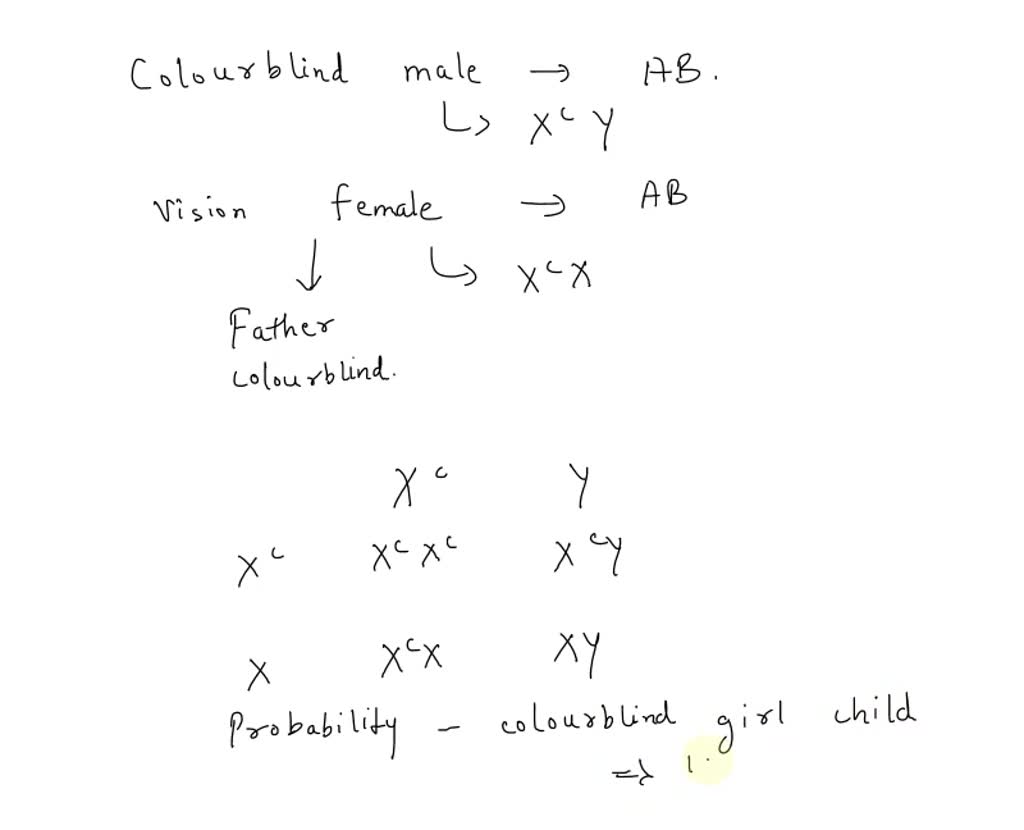 Colourblind male → AB.
↳ Xᶜ Y
Vision female → AB
↓ ↳ Xᶜ X
Father
colourblind.
Xᶜ Y
Xᶜ Xᶜ Xᶜ XᶜY
X XᶜX XY
Probability - colourblind girl child
⇒ 1.